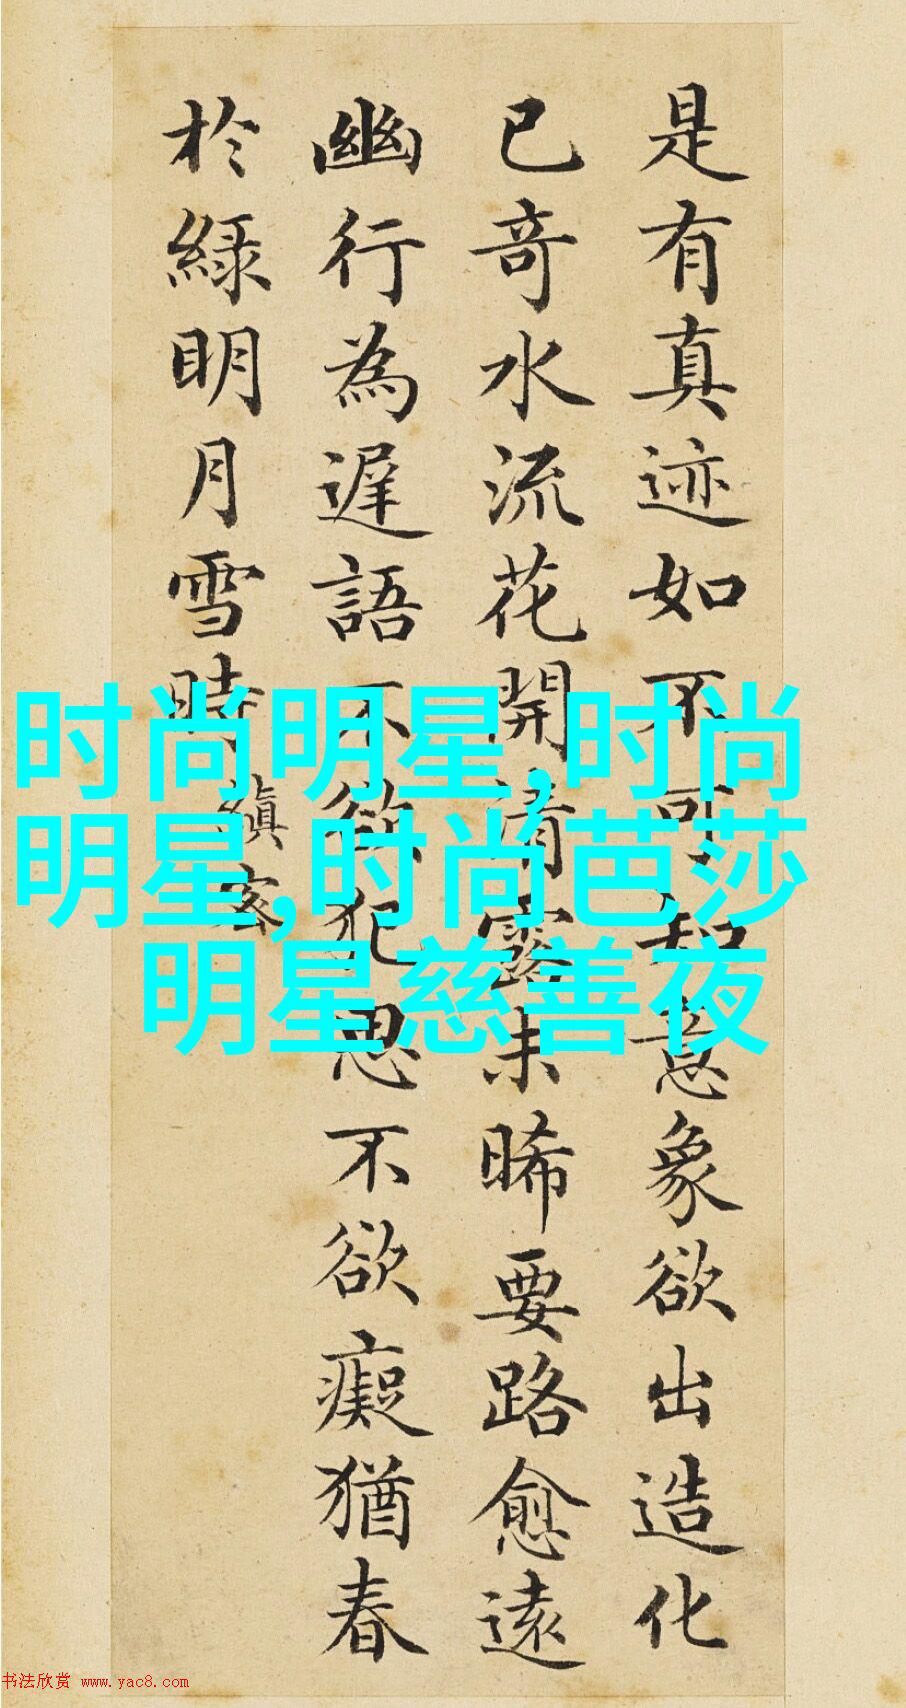 是有真迹如不可知意象欲出造化
已奇水流花開清露未晞要路愈遠
幽行為遲語不欲犯思不欲癡猶春
於綠明月雪時 縝密
时尚明星,时尚
明星,时尚芭莎
明星慈善夜
书法欣赏 www.yac8.com